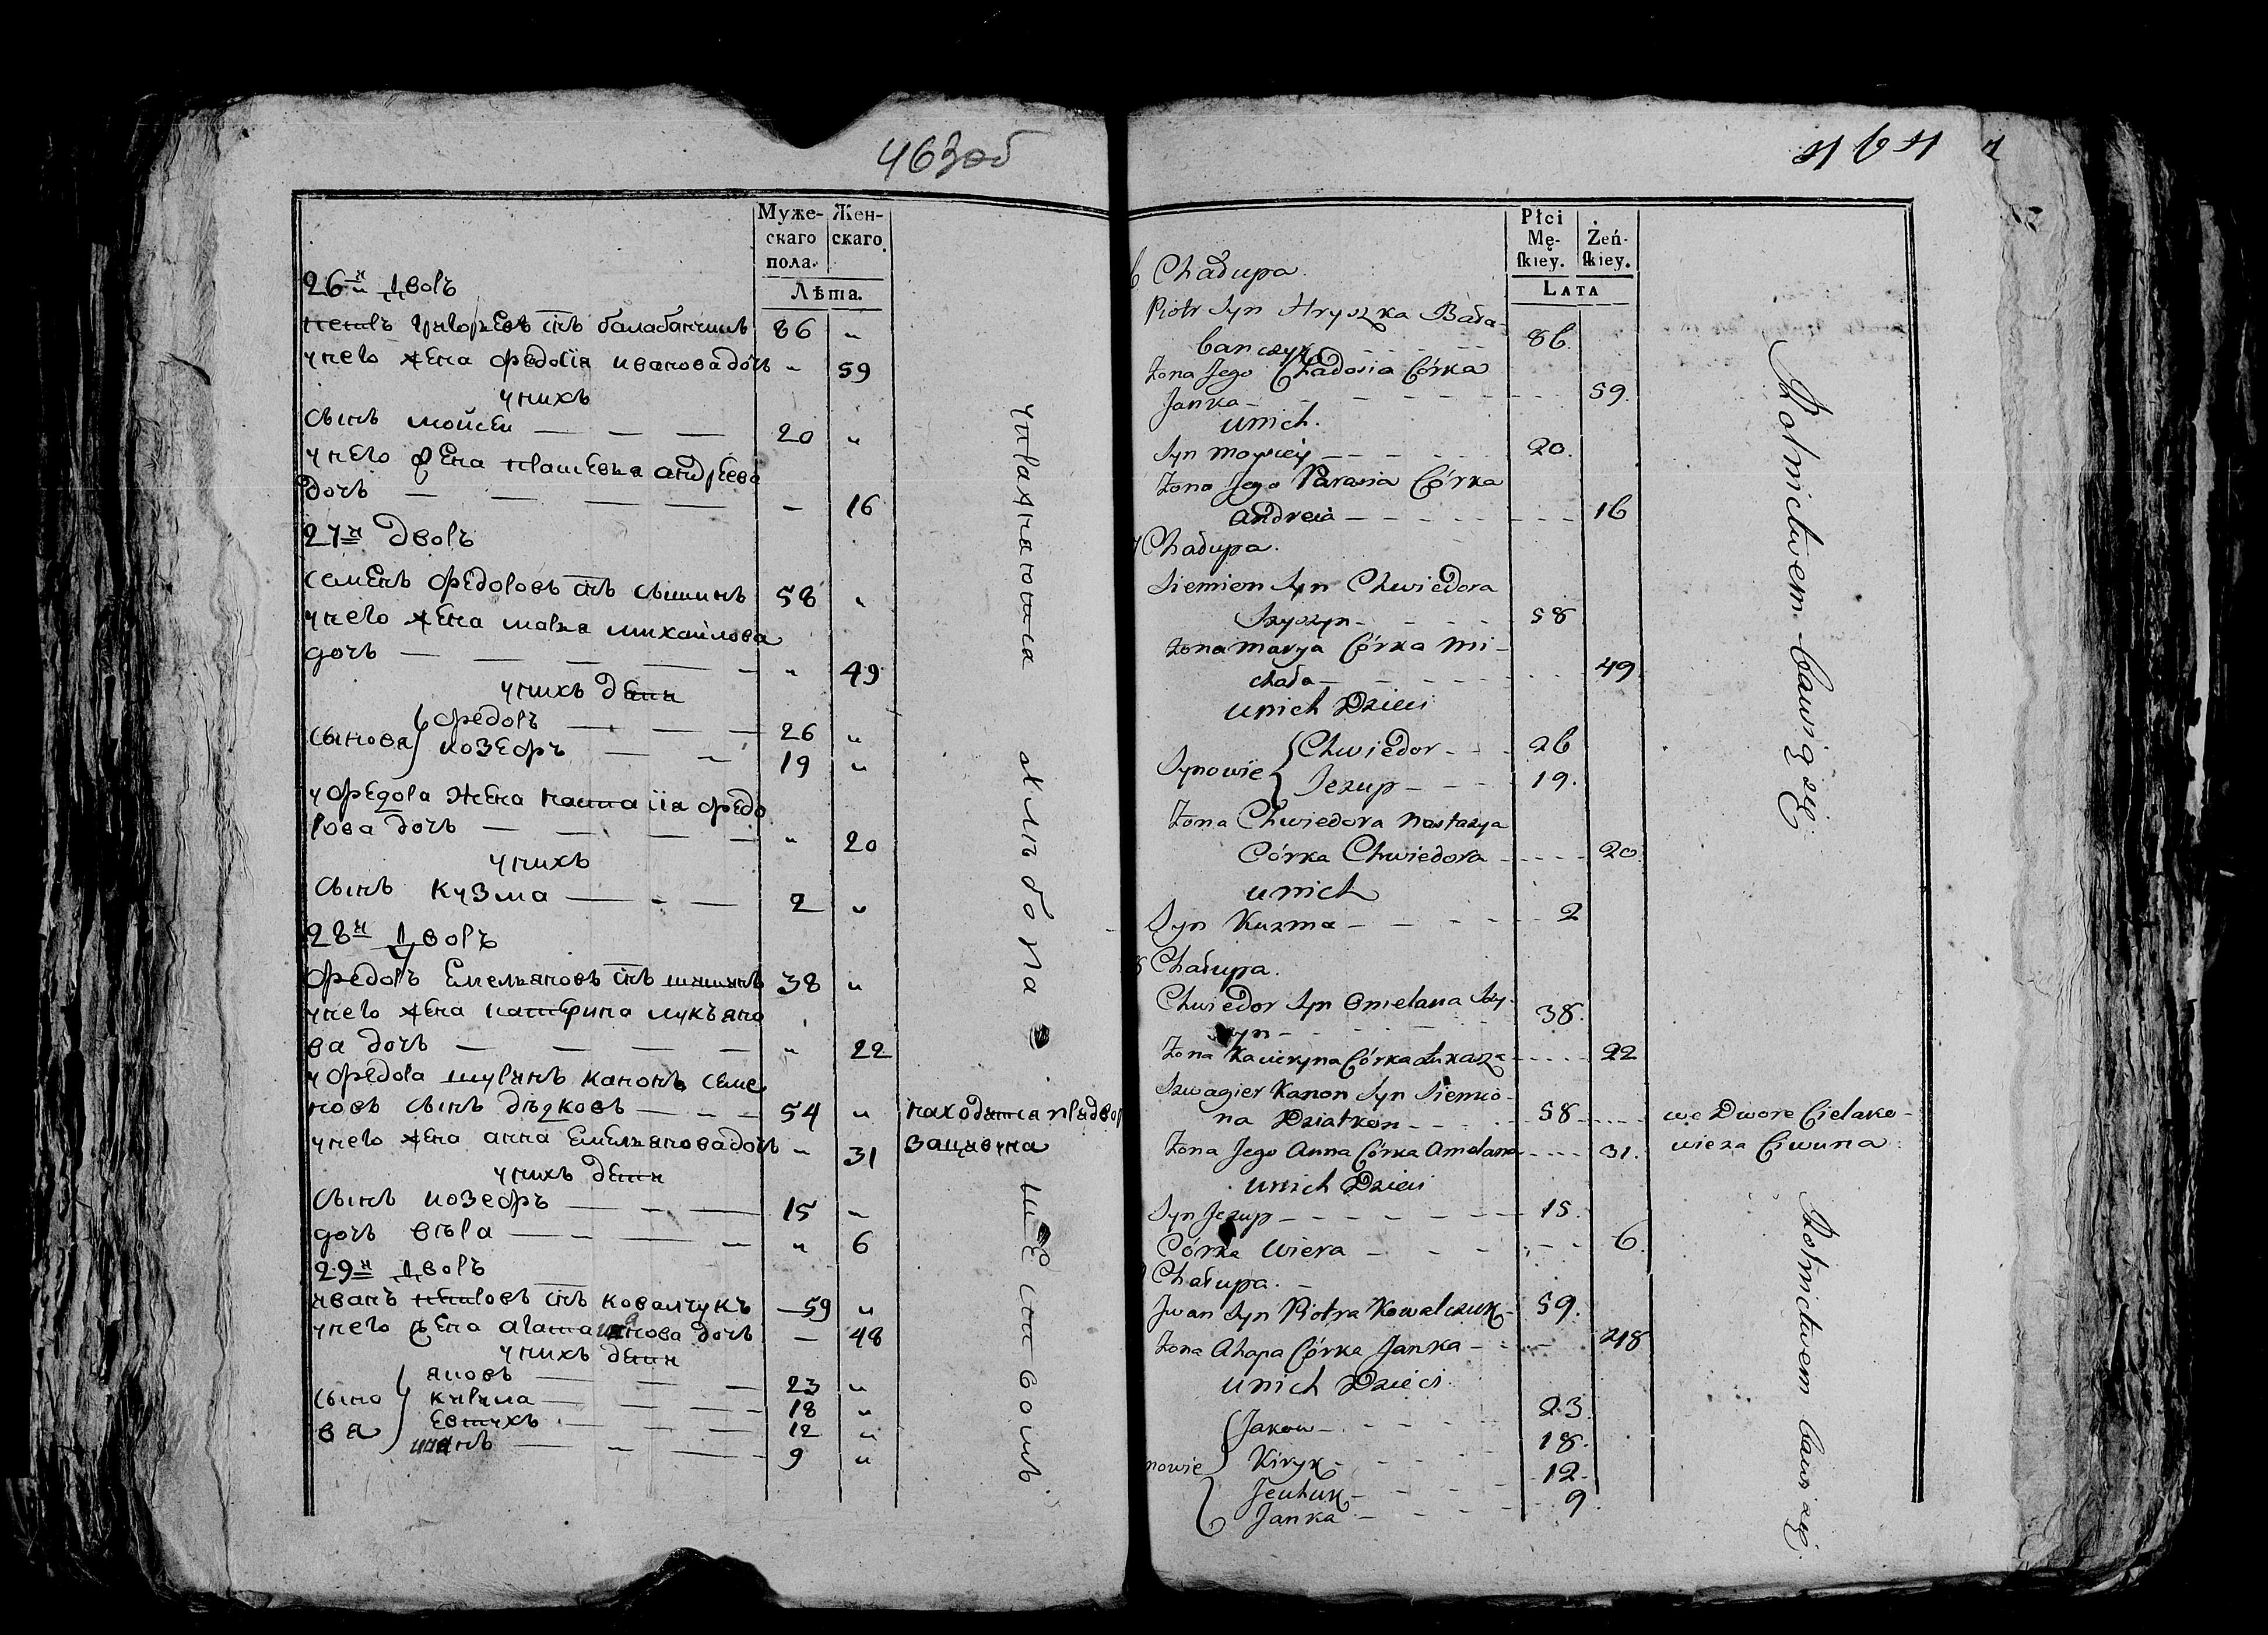 463об
Муже-
скаго
пола.
Жен-
скаго.
Лѣта.
26й Дворъ
петръ григорьевъ снъ балабанчикъ 86 "
унего жена федосія иванова дочь " 59
унихъ
сынъ мойсеи — — — 20 "
унего жена прасковья андреева
дочь — — — — - 16
27й Дворъ
семенъ федоровъ снъ сышинъ 58 "
унего жена марья михайлова
дочь — — — — — " 49
унихъ дети
сынова { федоръ — — — 26 "
иозефъ — — 19 "
уфедора жена настасія федо
рова дочь — — — — " 20
унихъ
сынъ кузма — - — 2 "
28й Дворъ
федоръ емельяновъ снъ шишинъ 38 "
унего жена катерина лукъяно
ва дочь — — — — " 22
уфедора шуринъ канонъ семе
новъ сынъ дѣдковъ — - - 54 " находится придвор
унего жена анна емельянова дочь - 31
унихъ дети
сынъ иозефъ — — — 15 "
дочь вѣра — - — - " 6
29й Дворъ
иванъ петровъ снъ ковалчукъ — 59 "
унего жена агата иванова дочь — 48
унихъ дети
сыно
ва { яковъ — — 23 "
кирила — — — 18 "
евтухъ — — — 12 "
иванъ — - — 9 "
упражняются хлѣбопашествомъ.
464
Płci
Mę-
ſkiey.
Żeń-
ſkiey.
LATA
Chałupa.
Piotr Syn Hryszka Bała-
banczyk - - - - 86.
Zona Jego Chadosia Córka
Janka - - - - - - 59.
unich.
Syn Moysiey - - - - 20.
Zona Jego Parasia Córka
Andreia - - - - - - 16
Chałupa.
Siemien Syn Chwiedora
Szyszyn - - - - 58
Zona Marya Córka Mi-
chała - - - - - 49
unich Dzieci
Synowie { Chwiedor - - 26
Jezup - - - 19.
Zona Chwiedora Nastazya
Córka Chwiedora - - - - 20.
unich
Syn Kuzma - - - - - 2
Chałupa.
Chwiedor Syn Omelana Szy-
szyn - - - - - 38.
Zona Kacieryna Córka Łukasza - - - - 22
Szwagier Kanon Syn Siemio-
na Dziatkow - - - 58 - - - - we Dworze Cielako-
Zona Jego Anna Córka Amelana - - - - 31. wicza Ciwuna
unich Dzieci
Syn Jezup - - - - - - - 15.
Córka Wiera - - - - - - 6.
Chałupa. -
Jwan Syn Piotra Kowalczuk - 59.
Zona Ahapa Córka Janka - - - 48
unich Dzieci.
nowie { Jakow - - - - 23
Kiryk - - - - 18.
Jeuhuk - - - - 12.
Janka - - - - 9.
Rolnictwem bawią się
Rolnictwem bawi się.